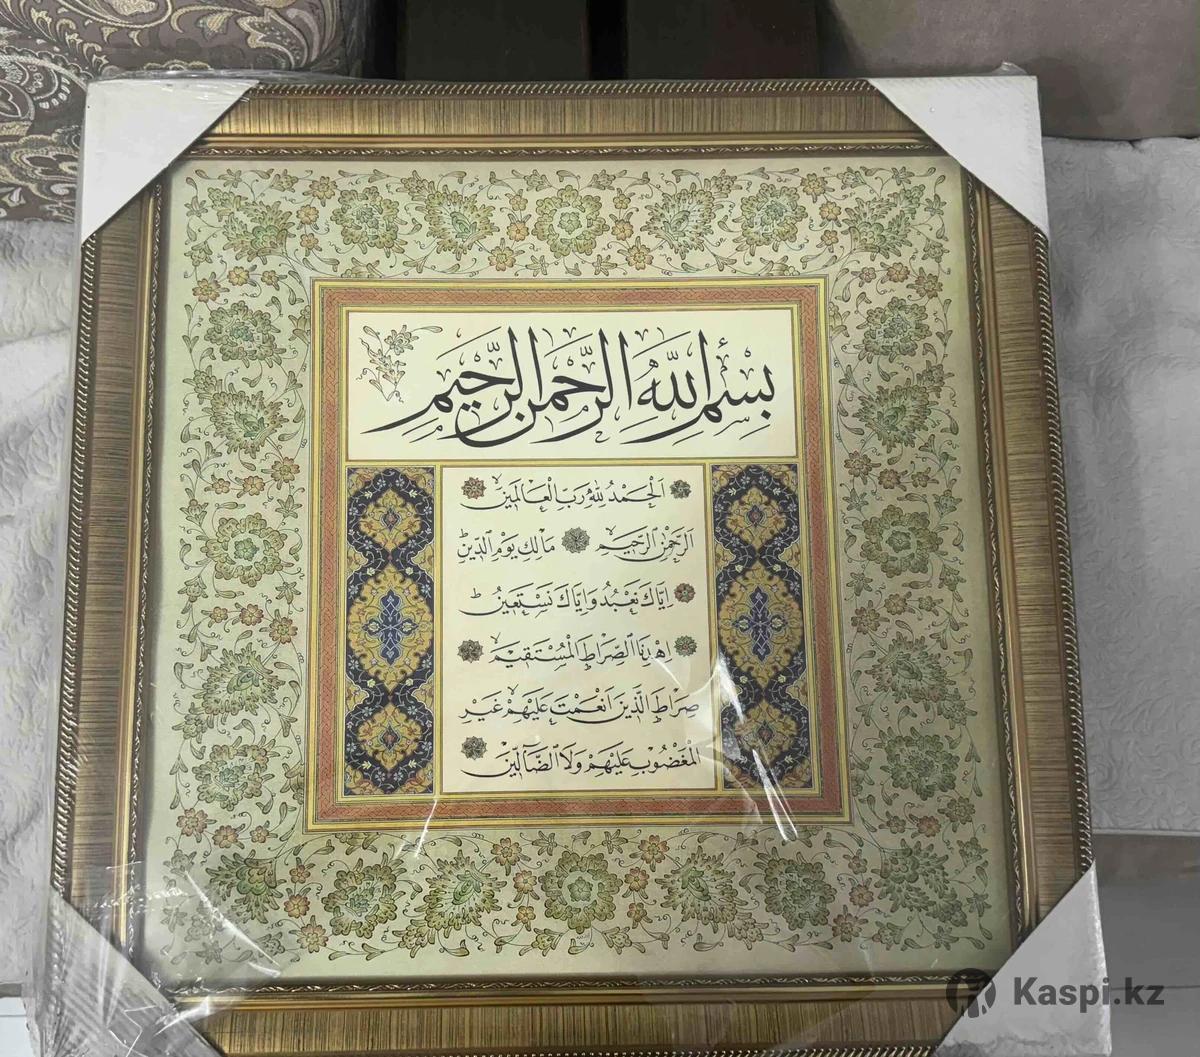 بِسْمِ اللّٰهِ الرَّحْمٰنِ الرَّحِيمِ
اَلْحَمْدُ لِلّٰهِ رَبِّ الْعَالَمِينَ
اَلرَّحْمٰنِ الرَّحِيمِ مَالِكِ يَوْمِ الدِّينِ
اِيَّاكَ نَعْبُدُ وَاِيَّاكَ نَسْتَعِينُ
اِهْدِنَا الصِّرَاطَ الْمُسْتَقِيمَ
صِرَاطَ الَّذِينَ اَنْعَمْتَ عَلَيْهِمْ غَيْرِ
الْمَغْضُوبِ عَلَيْهِمْ وَلَا الضَّٓالِّينَ
Kaspi.kz